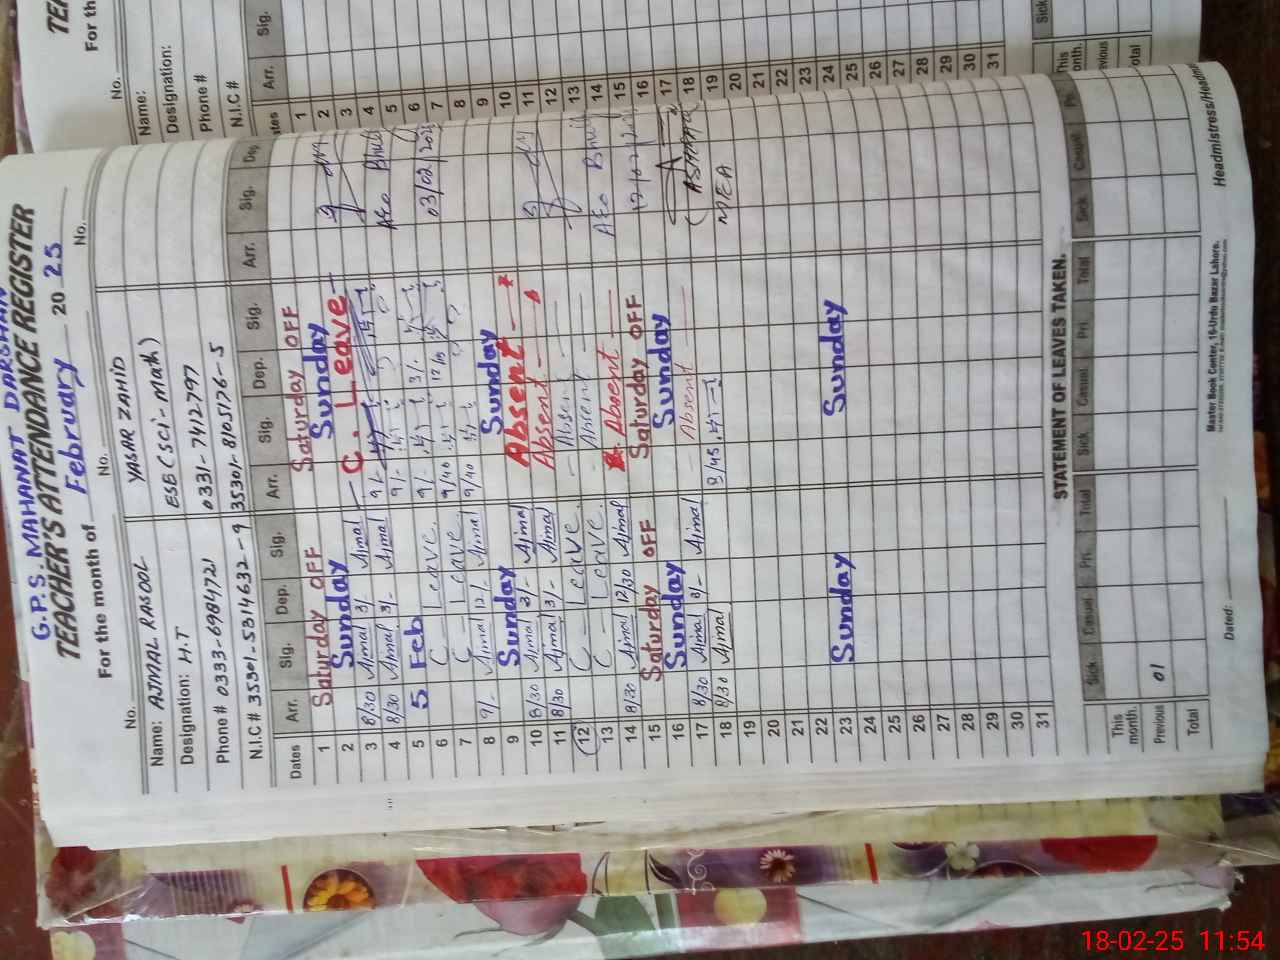 G.P.S. MAHANAT DARSHAN
TEACHER'S ATTENDANCE REGISTER
For the month of February 20 25
No. No. No.
Name: AJMAL RASOOL YASAR ZAHID
Designation: H.T ESE (Sci-Math)
Phone # 0333-6984721 0331-7412797
N.I.C # 35301-5314632-9 35301-8105176-5
Dates Arr. Sig. Dep. Sig. Arr. Sig. Dep. Sig. Arr. Sig. Dep.
1 Saturday OFF Saturday OFF
2 Sunday Sunday
3 8/30 Ajmal 3/- Ajmal C. Leave
4 8/30 Ajmal 3/- Ajmal 9/-
5 5 Feb 9/-
6 C Leave 9/- 3/- 03/02/202
7 C Leave 9/40 12/
8 9/- Ajmal 12/- Ajmal 9/40
9 Sunday Sunday
10 8/30 Ajmal 3/- Ajmal Absent
11 8/30 Ajmal 3/- Ajmal Absent
12 C Leave Absent
13 C Leave Absent
14 8/30 Ajmal 12/30 Ajmal Absent
15 Saturday OFF Saturday OFF
16 Sunday Sunday
17 8/30 Ajmal 3/- Ajmal Absent
18 8/30 Ajmal 9/45 MEA
19
20
21
22
23 Sunday Sunday
24
25
26
27
28
29
30
31
STATEMENT OF LEAVES TAKEN.
Sick Casual Pri. Total Sick Casual. Pri. Total Sick Casual
This month.
Previous 01
Total
Master Book Center, 16-Urdu Bazar Lahore.
Dated: Headmistress/Headm
No.
Name:
Designation:
Phone #
N.I.C #
Arr. Sig.
1
2
3
4
5
6
7
8
9
10
11
12
13
14
15
16
17
18
19
20
21
22
23
24
25
26
27
28
29
30
31
Sick
This month.
18-02-25 11:54